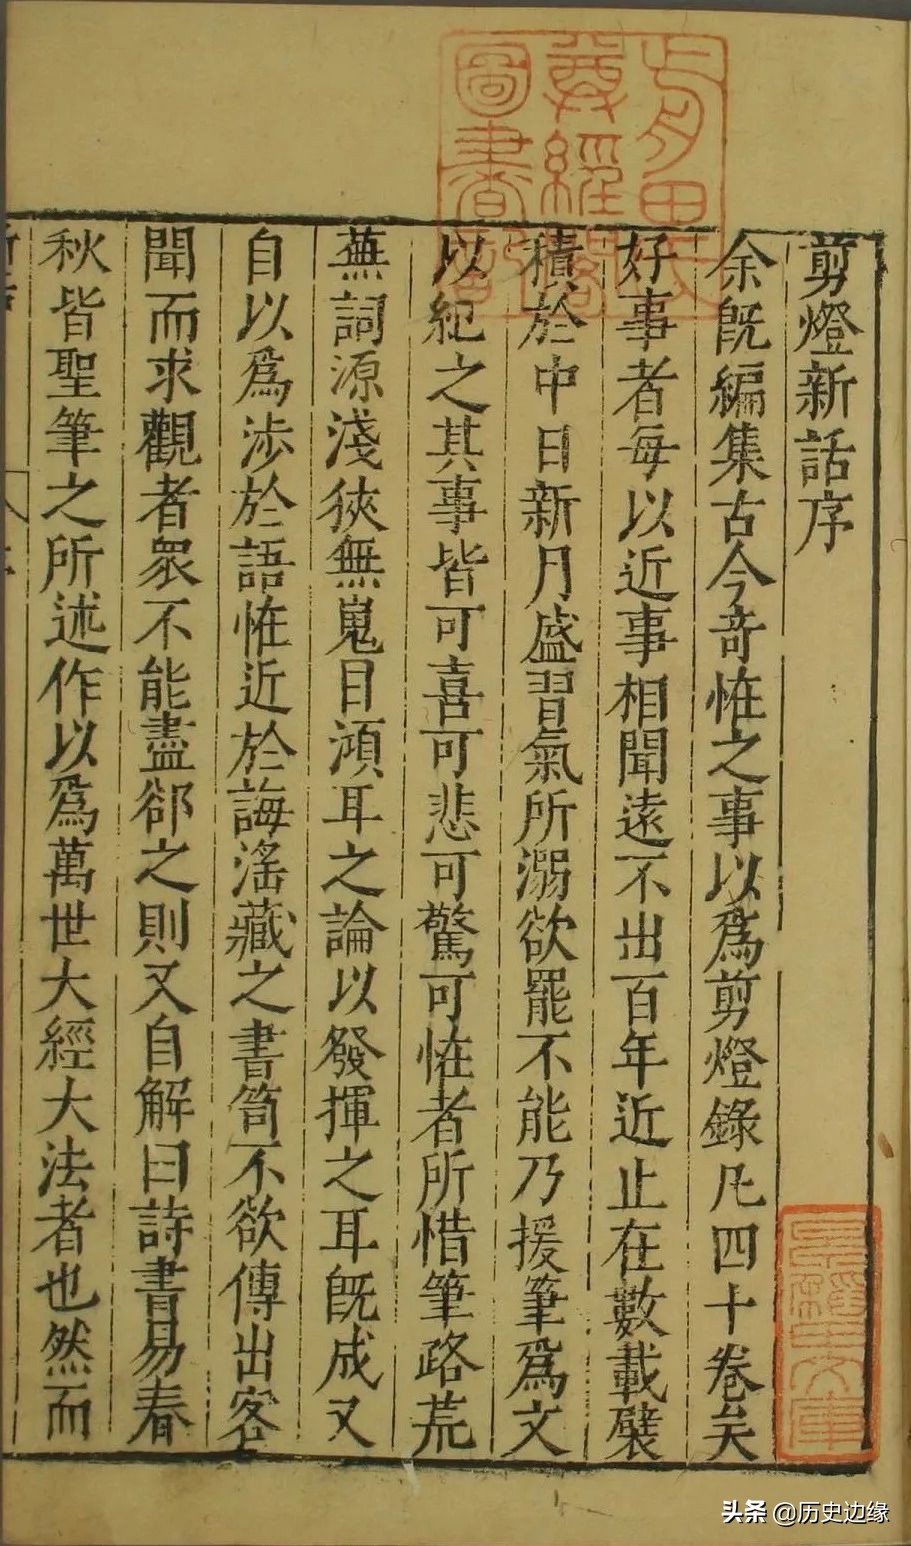 剪燈新話序
余旣編集古今竒恠之事以爲剪燈錄凡四十卷矣
好事者每以近事相聞遠不出百年近止在數載襞
積於中日新月盛習氣所溺欲罷不能乃援筆爲文
以紀之其事皆可喜可悲可驚可恠者所惜筆路荒
蕪詞源淺狹無嵬目澒耳之論以發揮之耳旣成又
自以爲涉於語恠近於誨滛藏之書笥不欲傳出客
聞而求觀者衆不能盡郤之則又自解曰詩書易春
秋皆聖筆之所述作以爲萬世大經大法者也然而
尊經閣
圖書
头条 @历史边缘